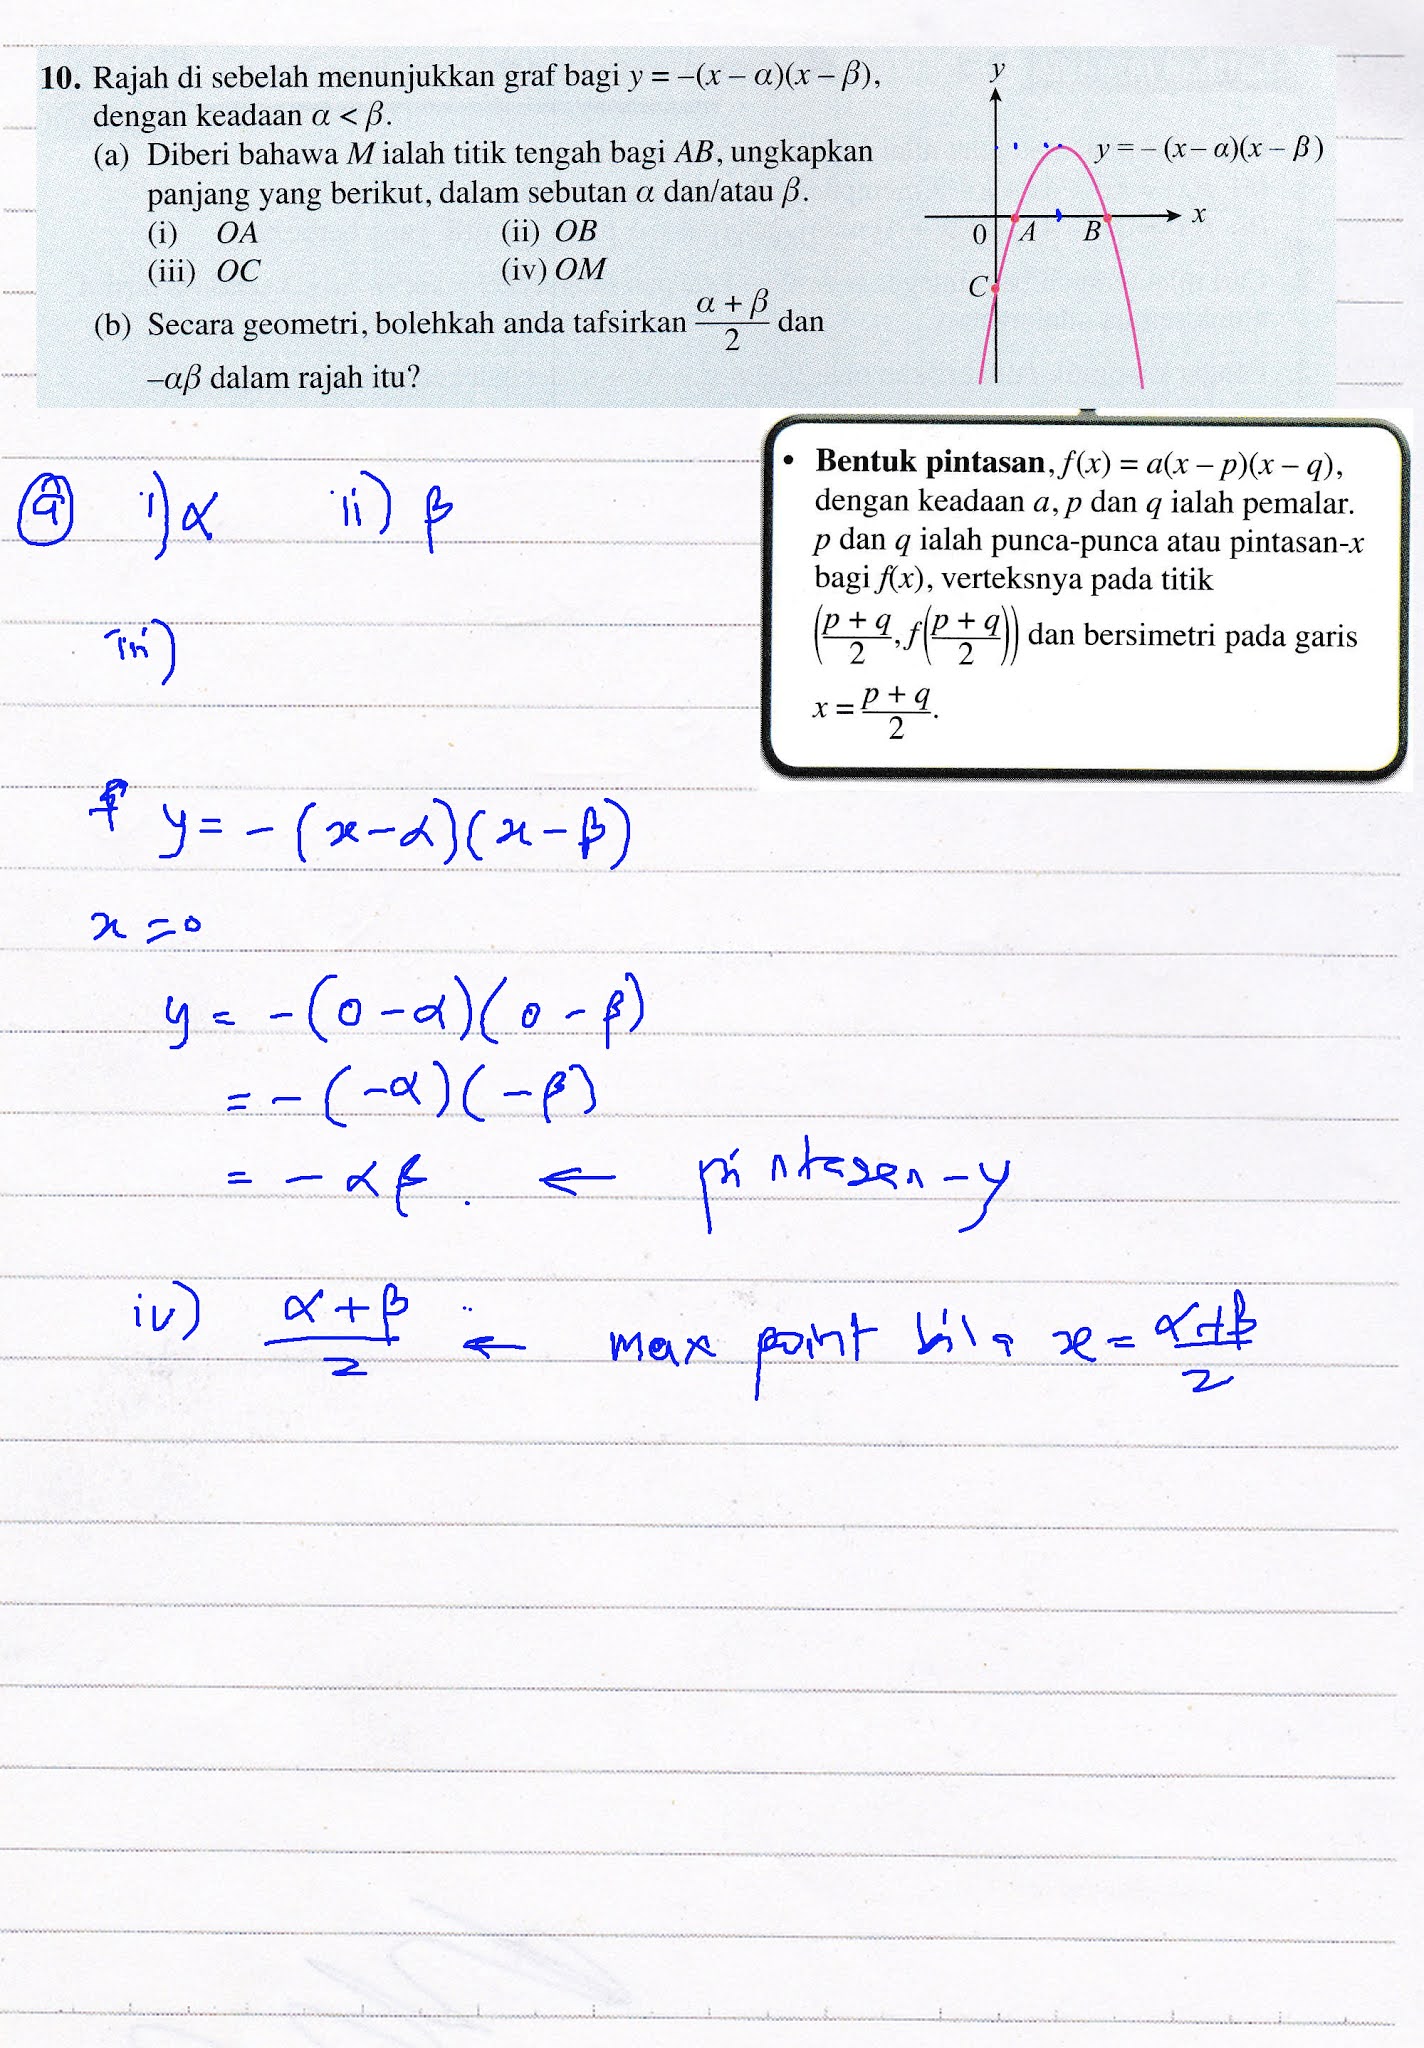 10. Rajah di sebelah menunjukkan graf bagi y = –(x – α)(x – β),
dengan keadaan α < β.
(a) Diberi bahawa M ialah titik tengah bagi AB, ungkapkan
panjang yang berikut, dalam sebutan α dan/atau β.
(i) OA (ii) OB
(iii) OC (iv) OM
(b) Secara geometri, bolehkah anda tafsirkan (α + β)/2 dan
–αβ dalam rajah itu?
y
y = – (x – α)(x – β)
x
0 A B
C
• Bentuk pintasan, f(x) = a(x – p)(x – q),
dengan keadaan a, p dan q ialah pemalar.
p dan q ialah punca-punca atau pintasan-x
bagi f(x), verteksnya pada titik
((p + q)/2, f((p + q)/2)) dan bersimetri pada garis
x = (p + q)/2.
a i) α ii) β
iii)
y = – (x – α)(x – β)
x = 0
y = – (0 – α)(0 – β)
= – (–α)(–β)
= – αβ. ← pintasan – y
iv) (α + β)/2 ← max point bila x = (α + β)/2